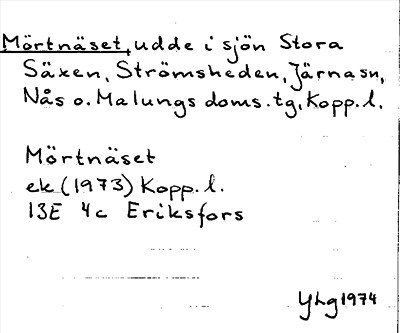 Mörtnäset, udde i sjön Stora
Säxen, Strömsheden, Järna sn,
Nås o. Malungs doms. tg, Kopp. l.
Mörtnäset
ek (1973) Kopp. l.
13E 4c Eriksfors
YLg 1974